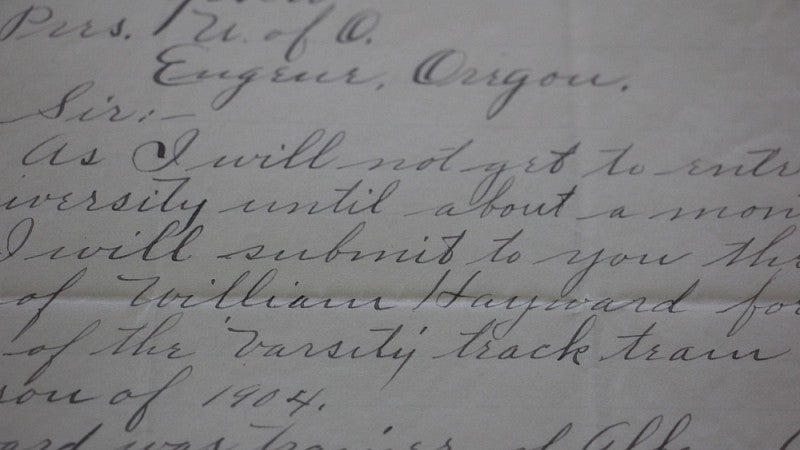 Pres. U. of O.
Eugene, Oregon.
Sir:—
As I will not get to ente
iversity until about a mon
I will submit to you the
of William Hayward for
of the 'Varsity track team
son of 1904.
ard was trainer of Alb